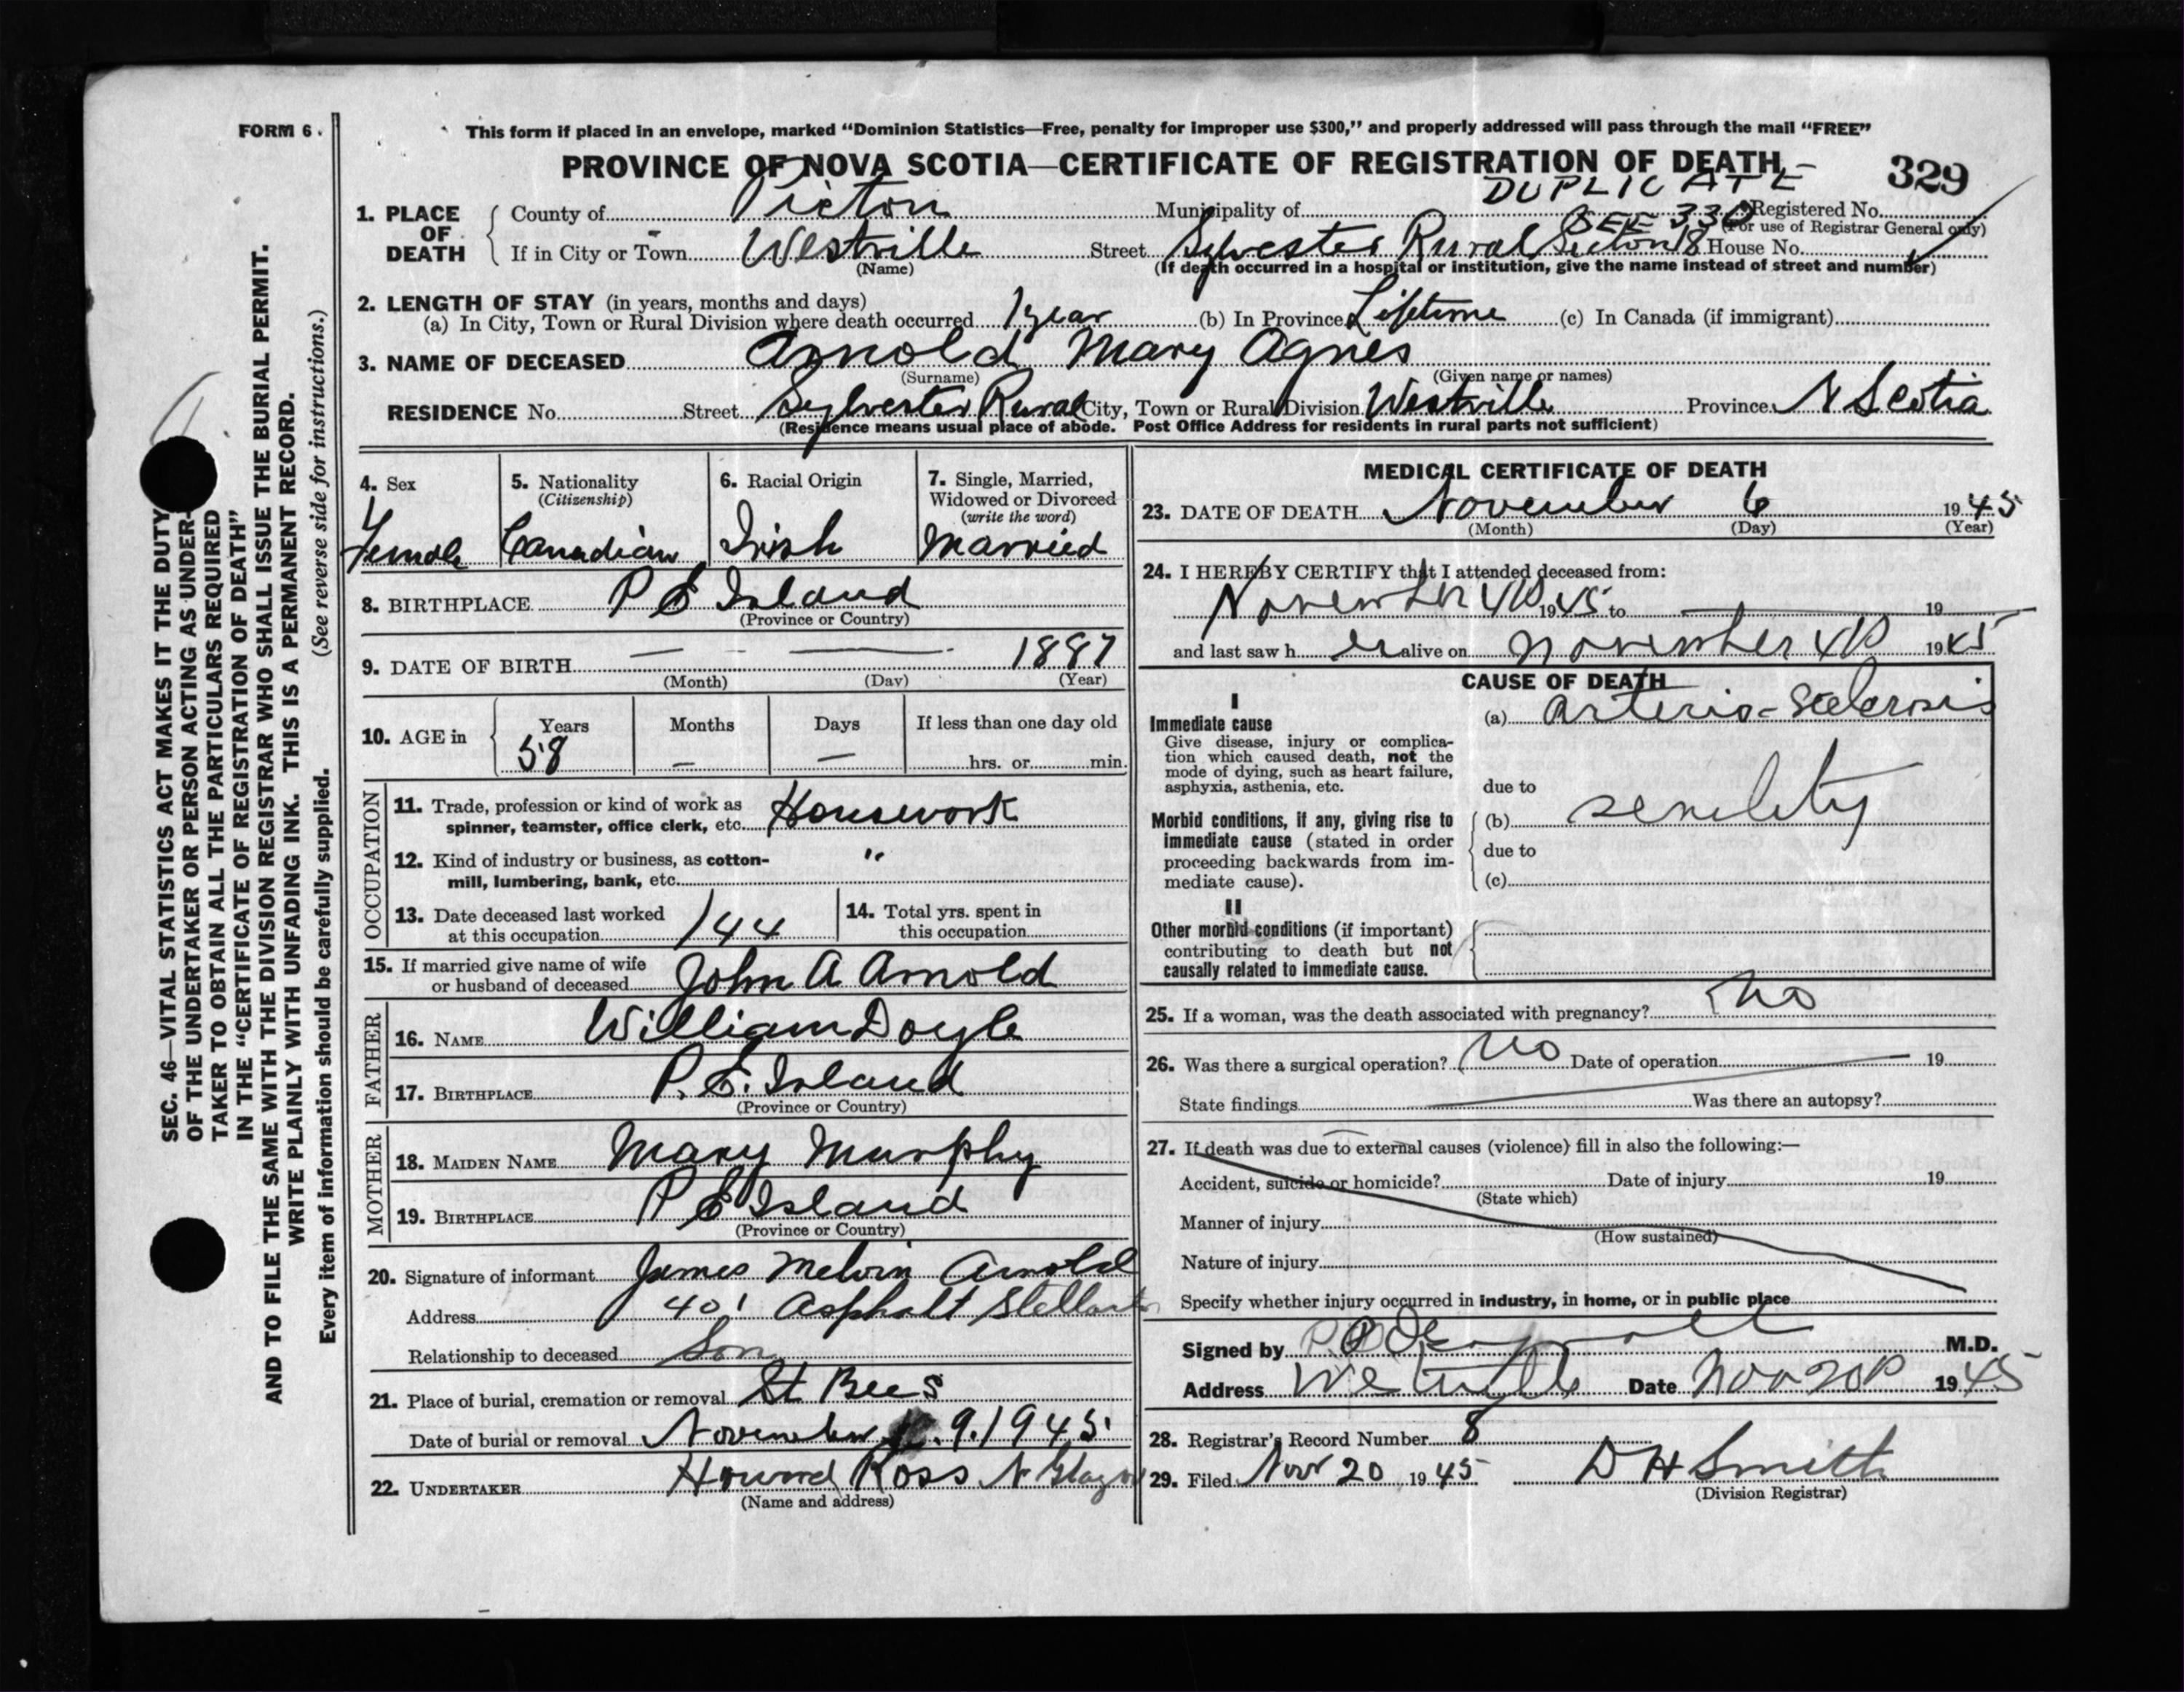 FORM 6.
This form if placed in an envelope, marked “Dominion Statistics—Free, penalty for improper use $300,” and properly addressed will pass through the mail “FREE”
PROVINCE OF NOVA SCOTIA—CERTIFICATE OF REGISTRATION OF DEATH
329
DUPLICATE
SEE 330
1. PLACE OF DEATH
County of Pictou Municipality of Registered No.
(For use of Registrar General only)
If in City or Town Westville Street Sylvester Rural Section 18 House No.
(Name) (If death occurred in a hospital or institution, give the name instead of street and number)
2. LENGTH OF STAY (in years, months and days)
(a) In City, Town or Rural Division where death occurred 1 year (b) In Province Lifetime (c) In Canada (if immigrant)
3. NAME OF DECEASED Arnold Mary Agnes
(Surname) (Given name or names)
RESIDENCE No. Street Sylvester Rural City, Town or Rural Division Westville Province N Scotia
(Residence means usual place of abode. Post Office Address for residents in rural parts not sufficient)
4. Sex
Female
5. Nationality
(Citizenship)
Canadian
6. Racial Origin
Irish
7. Single, Married,
Widowed or Divorced
(write the word)
Married
8. BIRTHPLACE P E Island
(Province or Country)
9. DATE OF BIRTH — — 1887
(Month) (Day) (Year)
10. AGE in
Years Months Days If less than one day old
58 — — hrs. or min.
OCCUPATION
11. Trade, profession or kind of work as
spinner, teamster, office clerk, etc. Housework
12. Kind of industry or business, as cotton-
mill, lumbering, bank, etc. "
13. Date deceased last worked
at this occupation 144
14. Total yrs. spent in
this occupation
15. If married give name of wife
or husband of deceased John A Arnold
FATHER
16. NAME William Doyle
17. BIRTHPLACE P. E. Island
(Province or Country)
MOTHER
18. MAIDEN NAME Mary Murphy
19. BIRTHPLACE P E Island
(Province or Country)
20. Signature of informant James Melvin Arnold
Address 401 Asphalt Stellarton
Relationship to deceased Son
21. Place of burial, cremation or removal St Bees
Date of burial or removal November 9. 1945
22. UNDERTAKER Howard Ross N Glasgow
(Name and address)
MEDICAL CERTIFICATE OF DEATH
23. DATE OF DEATH November 6 1945
(Month) (Day) (Year)
24. I HEREBY CERTIFY that I attended deceased from:
November 4th 1945 to — 19
and last saw her alive on November 4th 1945
CAUSE OF DEATH
I
Immediate cause
Give disease, injury or complica-
tion which caused death, not the
mode of dying, such as heart failure,
asphyxia, asthenia, etc.
(a) Arterio-Sclerosis
due to
Morbid conditions, if any, giving rise to
immediate cause (stated in order
proceeding backwards from im-
mediate cause).
(b) senility
due to
(c)
II
Other morbid conditions (if important)
contributing to death but not
causally related to immediate cause.
25. If a woman, was the death associated with pregnancy? No
26. Was there a surgical operation? No Date of operation 19
State findings Was there an autopsy?
27. If death was due to external causes (violence) fill in also the following:—
Accident, suicide or homicide? Date of injury 19
(State which)
Manner of injury
(How sustained)
Nature of injury
Specify whether injury occurred in industry, in home, or in public place
Signed by M.D.
Address Westville Date Nov 20th 1945
28. Registrar's Record Number 8
29. Filed Nov 20 1945 D H Smith
(Division Registrar)
SEC. 46—VITAL STATISTICS ACT MAKES IT THE DUTY
OF THE UNDERTAKER OR PERSON ACTING AS UNDER-
TAKER TO OBTAIN ALL THE PARTICULARS REQUIRED
IN THE “CERTIFICATE OF REGISTRATION OF DEATH”
AND TO FILE THE SAME WITH THE DIVISION REGISTRAR WHO SHALL ISSUE THE BURIAL PERMIT.
WRITE PLAINLY WITH UNFADING INK. THIS IS A PERMANENT RECORD.
Every item of information should be carefully supplied. (See reverse side for instructions.)